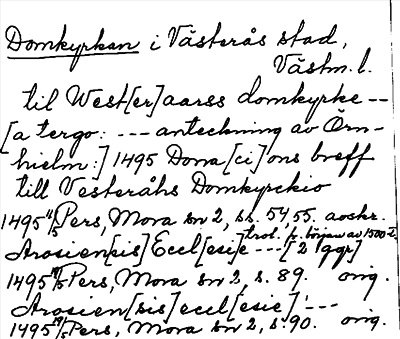 Domkyrkan i Västerås stad,
Västm. l.
til West[er]aarss domkyrke --
[a tergo: --- anteckning av Örn-
hielm:] 1495 Dona[ci]ons breff
till Vesteråhs Domkyrckio
1495 Pers, Mora sn 2, ss. 54 55. avskr.
trol. fr. början av 1500-t.
Arosien[sis] Eccl[esi]e --- [2 ggr]
1495 Pers, Mora sn 2, s. 89. orig.
Arosien[sis] eccl[esie] ---
1495 Pers, Mora sn 2, s. 90. orig.